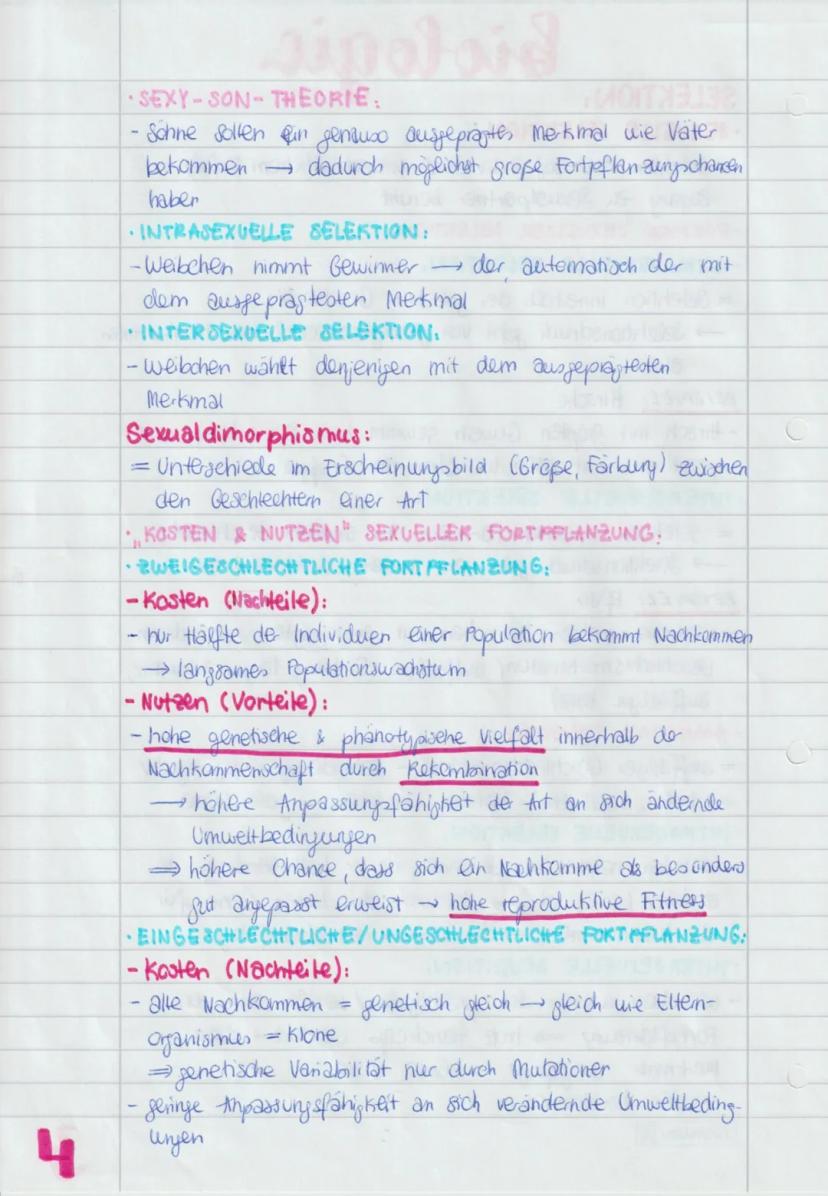 · SEXY-SON-THEORIE:
- Söhne sollen ein genauso ausgeprägtes Merkmal wie Väter
bekommen → dadurch möglichst große Fortpflanzungschancen
haben
· INTRASEXUELLE SELEKTION:
- Weibchen nimmt Gewinner → der automatisch der mit
dem ausgeprägtesten Merkmal
· INTERSEXUELLE SELEKTION:
- Weibchen wählt denjenigen mit dem ausgeprägtesten
Merkmal
Sexualdimorphismus:
= Unterschiede im Erscheinungsbild (Größe, Färbung) zwischen
den Geschlechtern einer Art
· „KOSTEN & NUTZEN" SEXUELLER FORTPFLANZUNG:
· ZWEIGESCHLECHTLICHE FORTPFLANZUNG:
- Kosten (Nachteile):
- nur Hälfte der Individuen einer Population bekommt Nachkommen
→ langsames Populationswachstum
- Nutzen (Vorteile):
- hohe genetische & phänotypische Vielfalt innerhalb der
Nachkommenschaft durch Rekombination
→ höhere Anpassungsfähigkeit der Art an sich ändernde
Umweltbedingungen
⇒ höhere Chance, dass sich ein Nachkomme als besonders
gut angepasst erweist → hohe reproduktive Fitness
· EINGESCHLECHTLICHE/UNGESCHLECHTLICHE FORTPFLANZUNG:
- Kosten (Nachteile):
- alle Nachkommen = genetisch gleich → gleich wie Eltern-
organismus = Klone
⇒ genetische Variabilität nur durch Mutationen
- geringe Anpassungsfähigkeit an sich verändernde Umweltbeding-
ungen
4